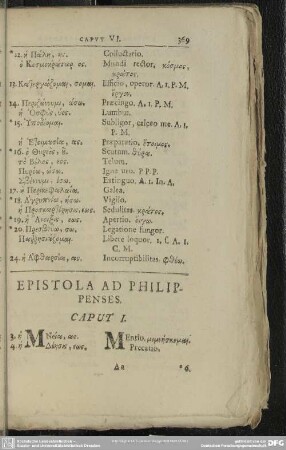 CAPUT VI. 369
*12. ἡ Πάλη, ης. Colluctatio.
ὁ Κοσμοκράτωρ ος. Mundi rector, κόσμος,
κράτος.
13. Κατεργάζομαι, σομαι. Efficio, operor. A. 1. P. M.
ἔργον.
14. Περιζώννυμι, ώσω. Præcingo. A. 1. P. M.
ἡ Ὀσφύς, ύος. Lumbus.
*15. Ὑποδέομαι. Subligor, calceo me. A. 1.
P. M.
ἡ Ἑτοιμασία, ας. Præparatio. ἕτοιμος.
*16. ὁ Θυρεός, οῦ. Scutum. θύρα.
τὸ Βέλος, εος. Telum.
Igne uro. P. P. P.
Σβέννυμι, έσω. Extinguo. A. 1. In. A.
17. ἡ Περικεφαλαία. Galea.
18. Ἀγρυπνέω, ήσω. Vigilo.
ἡ Προσκαρτέρησις, εως. Sedulitas κράτος.
*19. ἡ Ἄνοιξις, εως. Apertio.
*20. Πρεσβεύω, σω. Legatione fungor.
Παρρησιάζομαι. Libere loquor. 1. f. A. 1.
C. M.
24. ἡ Ἀφθαρσία, ας. Incorruptibilitas. φθίω.
EPISTOLA AD PHILIP-
PENSES.
CAPUT I.
3. ἡ Μνεία, ας. Mentio, μιμνήσκομαι.
4. ἡ Δέησις, εως. Precatio.
Aa *6.